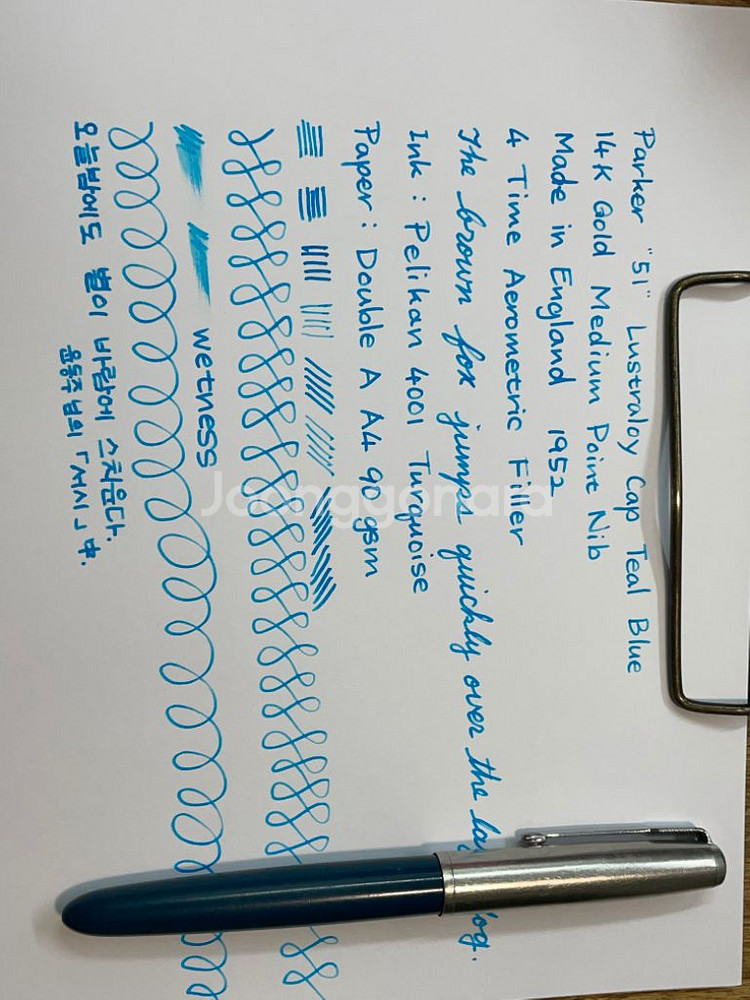 Parker "51" Lustraloy Cap Teal Blue
14K Gold Medium Point Nib
Made in England 1952
4 Time Aerometric Filler
The brown fox jumps quickly over the la og.
Ink : Pelikan 4001 Turquoise
Paper : Double A A4 90 gsm
wetness
오늘밤에도 별이 바람에 스치운다.
윤동주님의 「서시」中.
Joonggonara